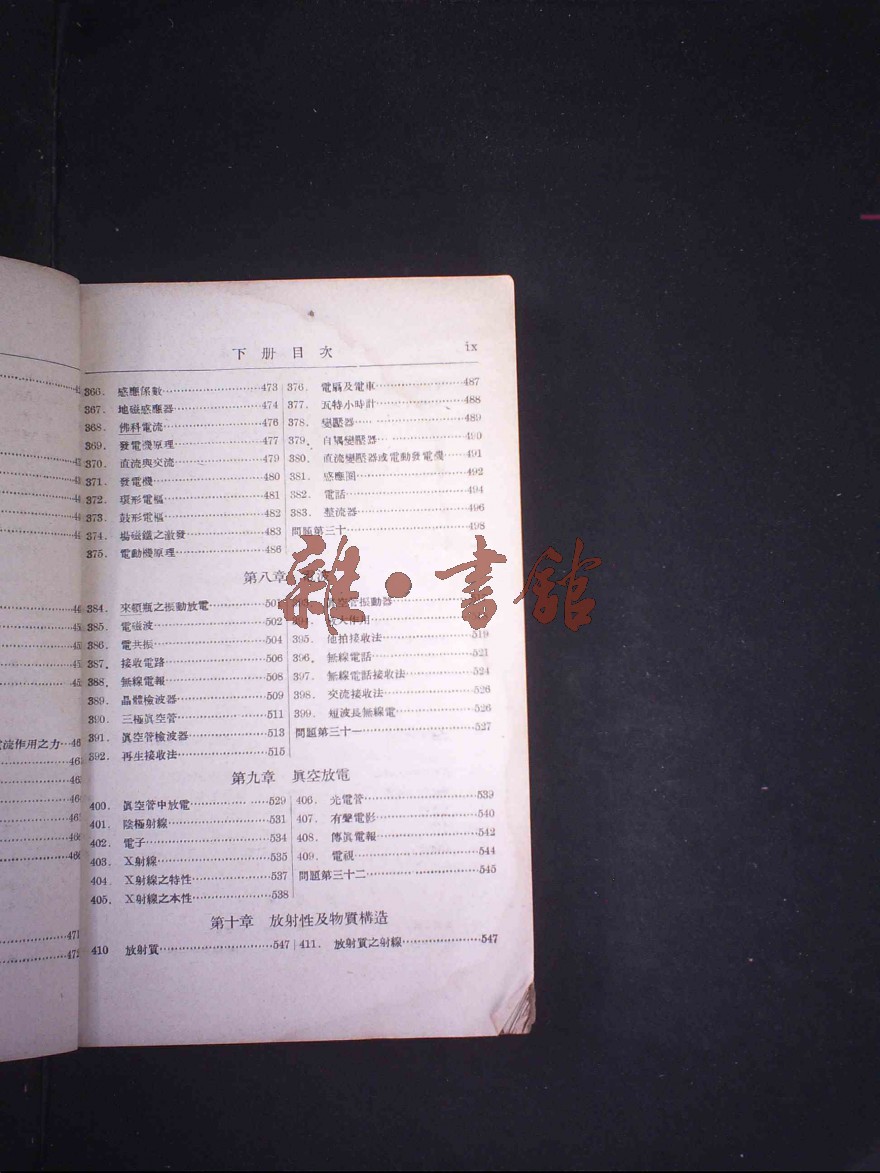 下册目次 ix
366. 感應係數 473
367. 地磁感應器 474
368. 佛科電流 476
369. 發電機原理 477
370. 直流與交流 479
371. 發電機 480
372. 環形電樞 481
373. 鼓形電樞 482
374. 場磁鐵之激發 483
375. 電動機原理 486
376. 電扇及電車 487
377. 瓦特小時計 488
378. 變壓器 489
379. 自耦變壓器 490
380. 直流變壓器或電動發電機 491
381. 感應圈 492
382. 電話 494
383. 整流器 496
問題第三十 498
第八章
384. 來頓瓶之振動放電 501
385. 電磁波 502
386. 電共振 504
387. 接收電路 506
388. 無線電報 508
389. 晶體檢波器 509
390. 三極眞空管 511
391. 眞空管檢波器 513
392. 再生接收法 515
空管振動器
395. 他拍接收法 519
396. 無線電話 521
397. 無線電話接收法 524
398. 交流接收法 526
399. 短波長無線電 526
問題第三十一 527
第九章 眞空放電
400. 眞空管中放電 529
401. 陰極射線 531
402. 電子 534
403. X射線 535
404. X射線之特性 537
405. X射線之本性 538
406. 光電管 539
407. 有聲電影 540
408. 傳眞電報 542
409. 電視 544
問題第三十二 545
第十章 放射性及物質構造
410 放射質 547
411. 放射質之射線 547
流作用之力
471
雜·書館